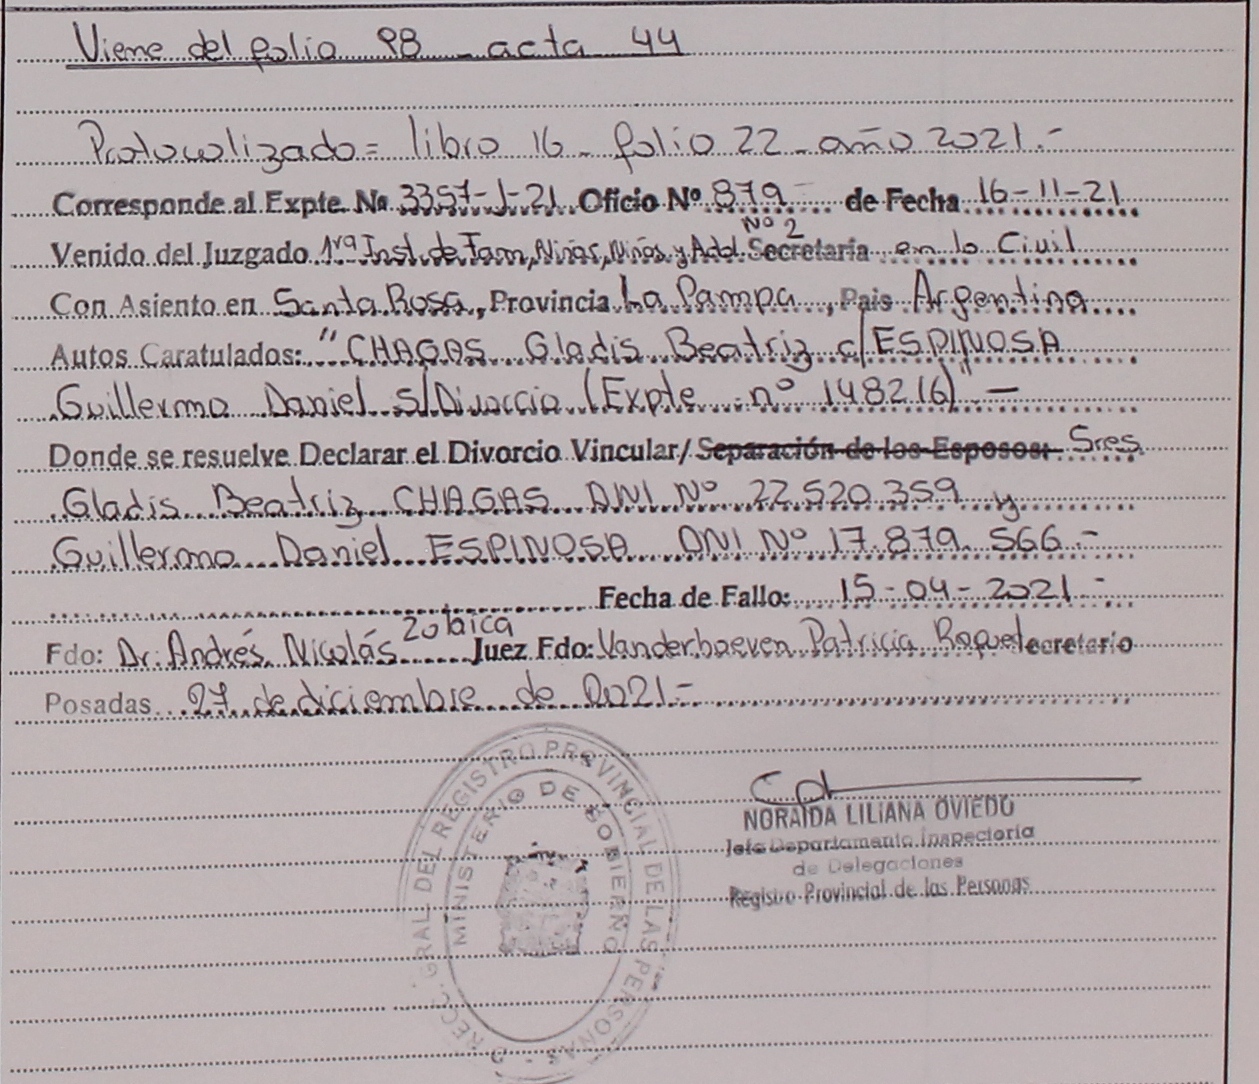 Viene del folio 98 acta 44
Protocolizado= libro 16 - folio 22 - año 2021.-
Corresponde al Expte. Nº 3357-J-21 Oficio Nº 879 - de Fecha 16-11-21
Venido del Juzgado 1ra Inst. de Fam, Niñas, Niños y Adol. Nº 2 Secretaria en lo Civil
Con Asiento en Santa Rosa, Provincia La Pampa, Pais Argentina
Autos Caratulados: "CHAGAS Gladis Beatriz c/ ESPINOSA
Guillermo Daniel s/ Divorcio (Expte nº 148216)" -
Donde se resuelve Declarar el Divorcio Vincular/ Separación de los Esposos: Sres
Gladis Beatriz CHAGAS DNI Nº 22.520.359 y
Guillermo Daniel ESPINOSA DNI Nº 17.879.566.-
Fecha de Fallo: 15-04-2021-
Fdo: Dr. Andrés Nicolás Zulaica Juez Fdo: Vanderhoeven Patricia Raquel Secretario
Posadas 27 de diciembre de 2021.-
DIRECC. GRAL. DEL REGISTRO PROVINCIAL DE LAS PERSONAS
MINISTERIO DE GOBIERNO
NORAIDA LILIANA OVIEDO
Jefe Departamento Inspectoria
de Delegaciones
Registro Provincial de las Personas